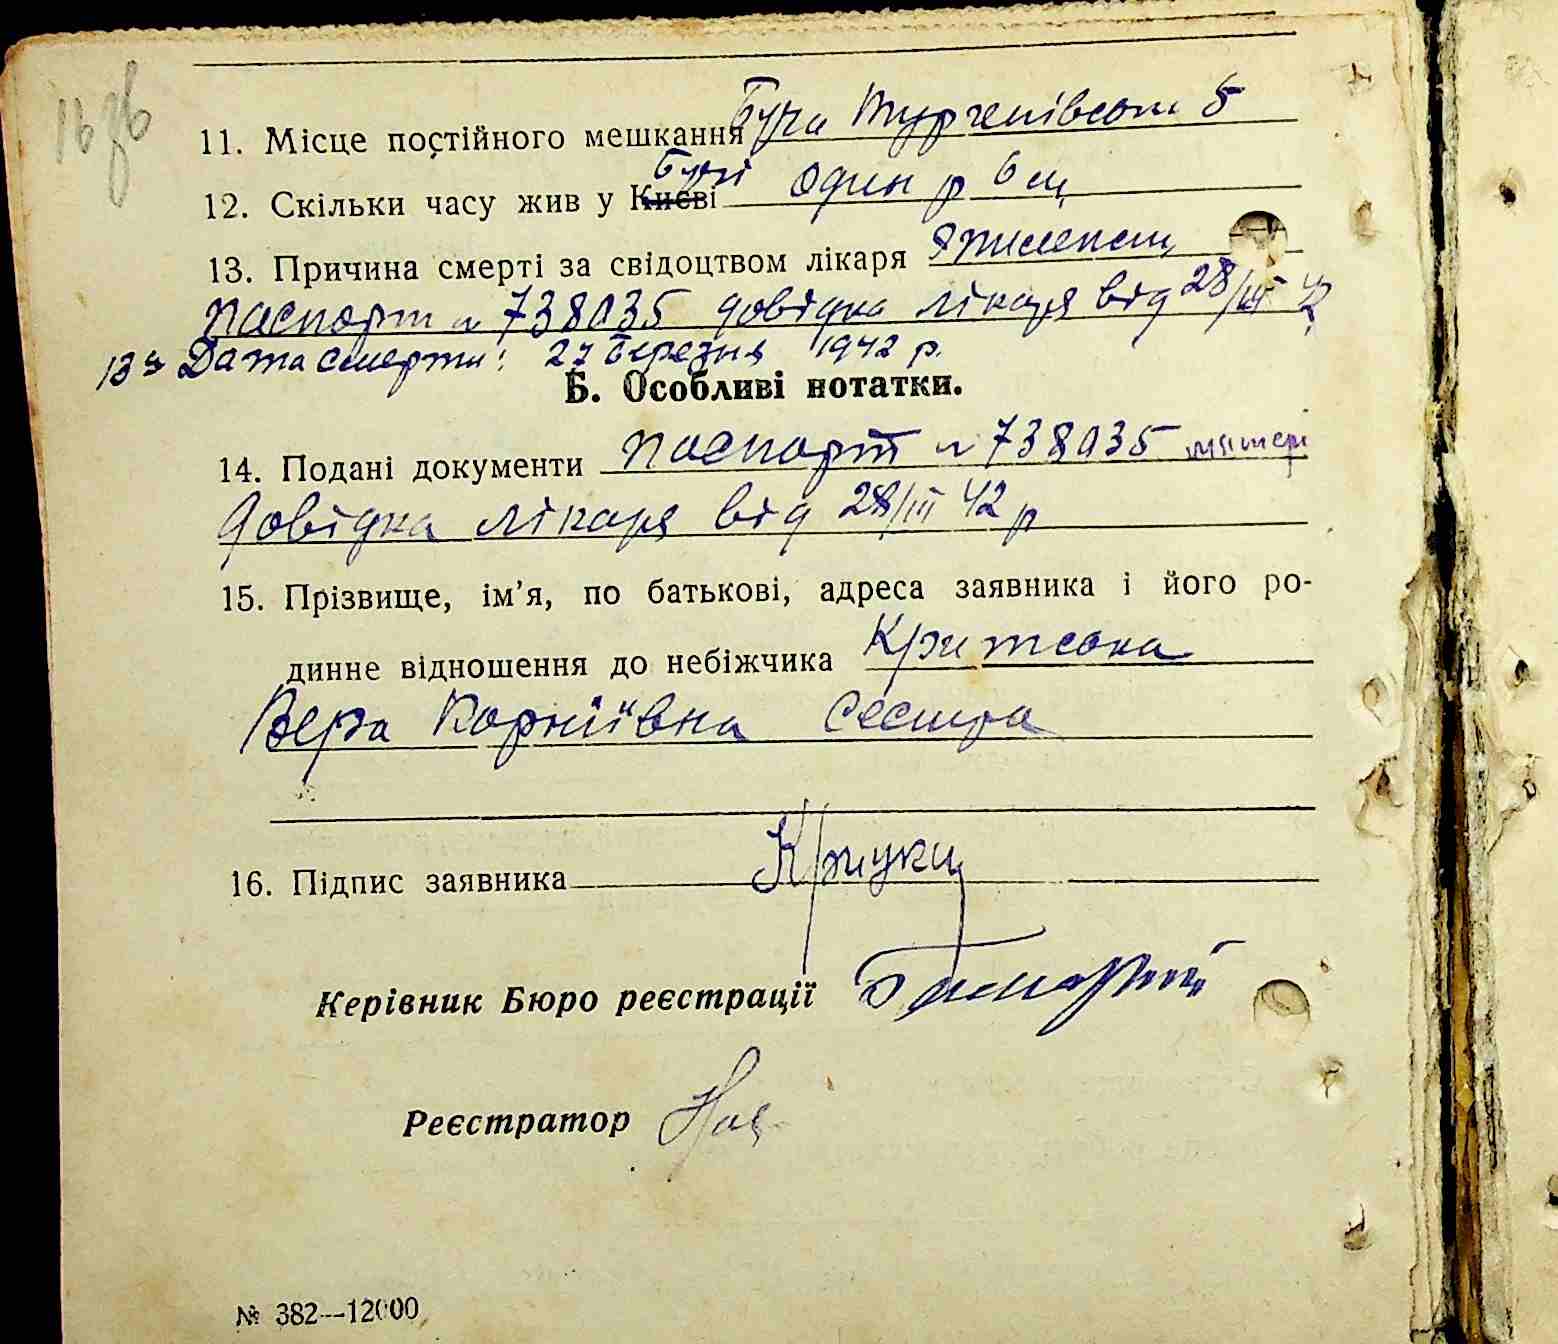 16 зв
11. Місце постійного мешкання Буча Тургенівська 5
Бучі
12. Скільки часу жив у Києві один р 6 м
13. Причина смерті за свідоцтвом лікаря
паспорт № 738035 довідка лікаря від 28/III 42
13а Дата смерти: 27 березня 1942 р.
Б. Особливі нотатки.
14. Подані документи паспорт № 738035 матері
довідка лікаря від 28/III 42 р
15. Прізвище, ім’я, по батькові, адреса заявника і його ро-
динне відношення до небіжчика
Вера Корніївна сестра
16. Підпис заявника
Керівник Бюро реєстрації
Реєстратор
№ 382—12000